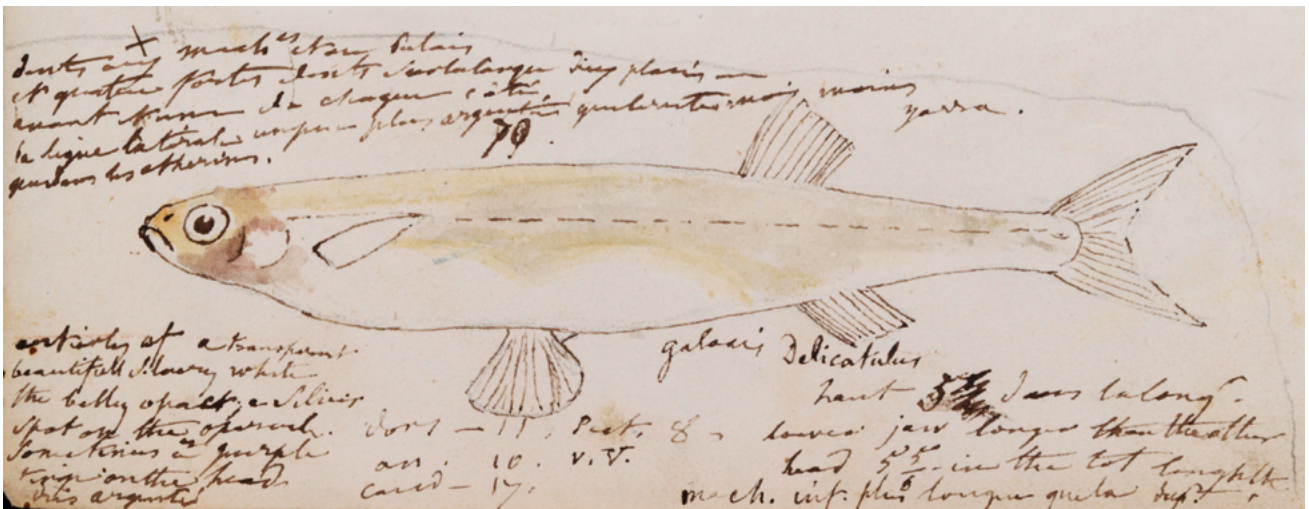 dents aux mach^es et au palais
et quatre fortes dents sur la langue deux placés en
avant et une de chaque côté,
la ligne latérale un peu plus argentée mais moins
que dans les atherines.
yarra.
70.
entirely of a transparent
beautiful silvery white
the belly opact, a silver
spot on the opercul.
Sometimes a purple
tinge on the head
iris argenté
galaxis Delicatulus
haut dans la long^r.
dors – 11, Pect. 8 –
an. 10. v. V.
caud – 17.
lower jaw longer than the other
head 5 5/6 in the tot lenght
mach. inf. plus longue que la sup^r.